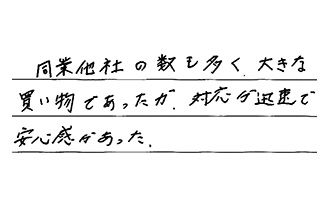 同業他社の数も多く、大きな
買い物であったが、対応が迅速で
安心感があった.